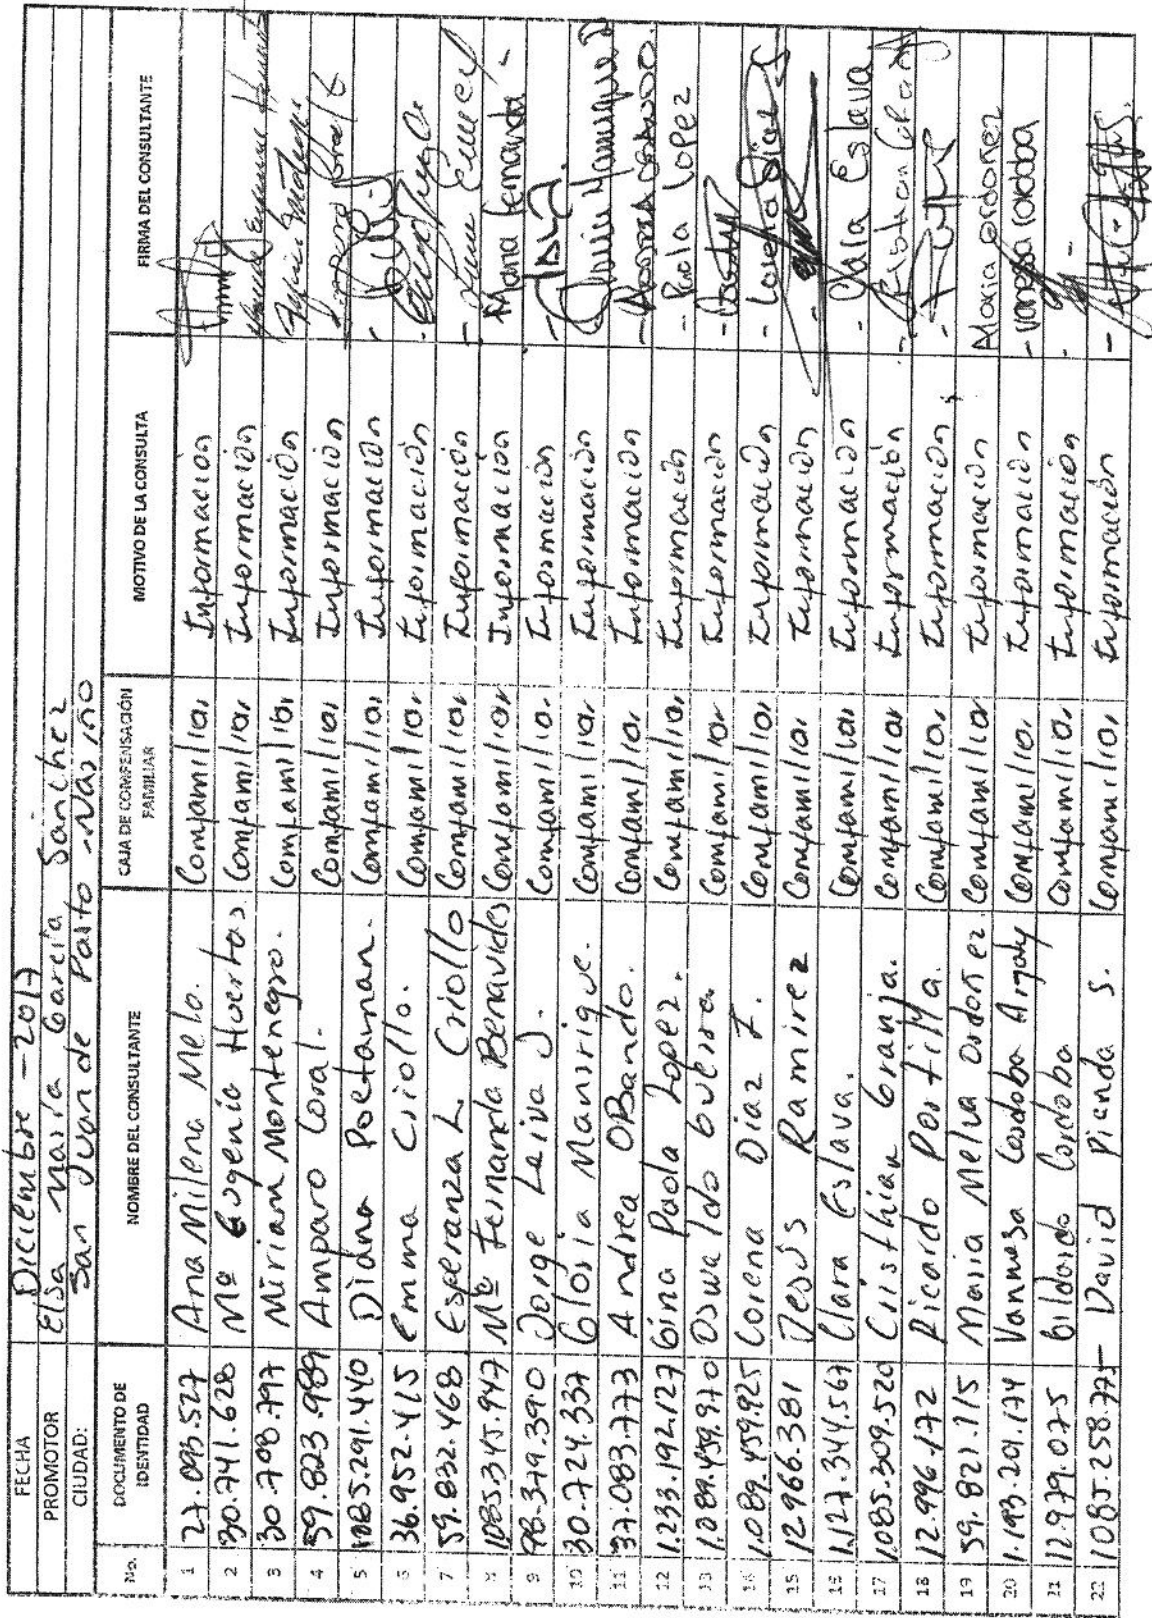 FECHA Diciembre - 2017
PROMOTOR Elsa María García Sánchez
CIUDAD: San Juan de Pasto - Nariño
No. DOCUMENTO DE IDENTIDAD NOMBRE DEL CONSULTANTE CAJA DE COMPENSACIÓN FAMILIAR MOTIVO DE LA CONSULTA FIRMA DEL CONSULTANTE
1 27.093.527 Ana Milena Melo. Comfamiliar Información
2 30.741.628 Mª Eugenia Huertas Comfamiliar Información
3 30.708.797 Miriam Montenegro. Comfamiliar Información
4 59.823.989 Amparo Coral. Comfamiliar Información
5 1085.291.440 Diana Poetaman. Comfamiliar Información
6 36.952.415 Emma Criollo. Comfamiliar Información
7 59.832.468 Esperanza L. Criollo Comfamiliar Información
8 1085.345.947 Mª Fernanda Benavides Comfamiliar Información Maria Fernanda -
9 98.379.390 Jorge Leiva J. Comfamiliar Información
10 30.724.337 Gloria Manrique. Comfamiliar Información
11 37.083.773 Andrea OBando. Comfamiliar Información
12 1.233.192.127 Gina Paola Lopez. Comfamiliar Información - Paola Lopez
13 1.089.459.970 Oswaldo Guerra. Comfamiliar Información
14 1.089.459.925 Lorena Diaz I. Comfamiliar Información - Lorena Diaz
15 12.966.381 Jesús Ramirez Comfamiliar Información
16 1.127.344.567 Clara Eslava. Comfamiliar Información - Clara Eslava
17 1.085.309.520 Cristhian Granja. Comfamiliar Información
18 12.996.172 Ricardo Portilla. Comfamiliar Información
19 59.821.115 Maria Melva Ordoñez Comfamiliar Información Maria Ordoñez
20 1.193.201.174 Vannesa Cordoba Argoty Comfamiliar Información - Vanessa Cordoba
21 12.979.075 Gildardo Cordoba Comfamiliar Información
22 1085.258.775 - David Pianda S. Comfamiliar Información